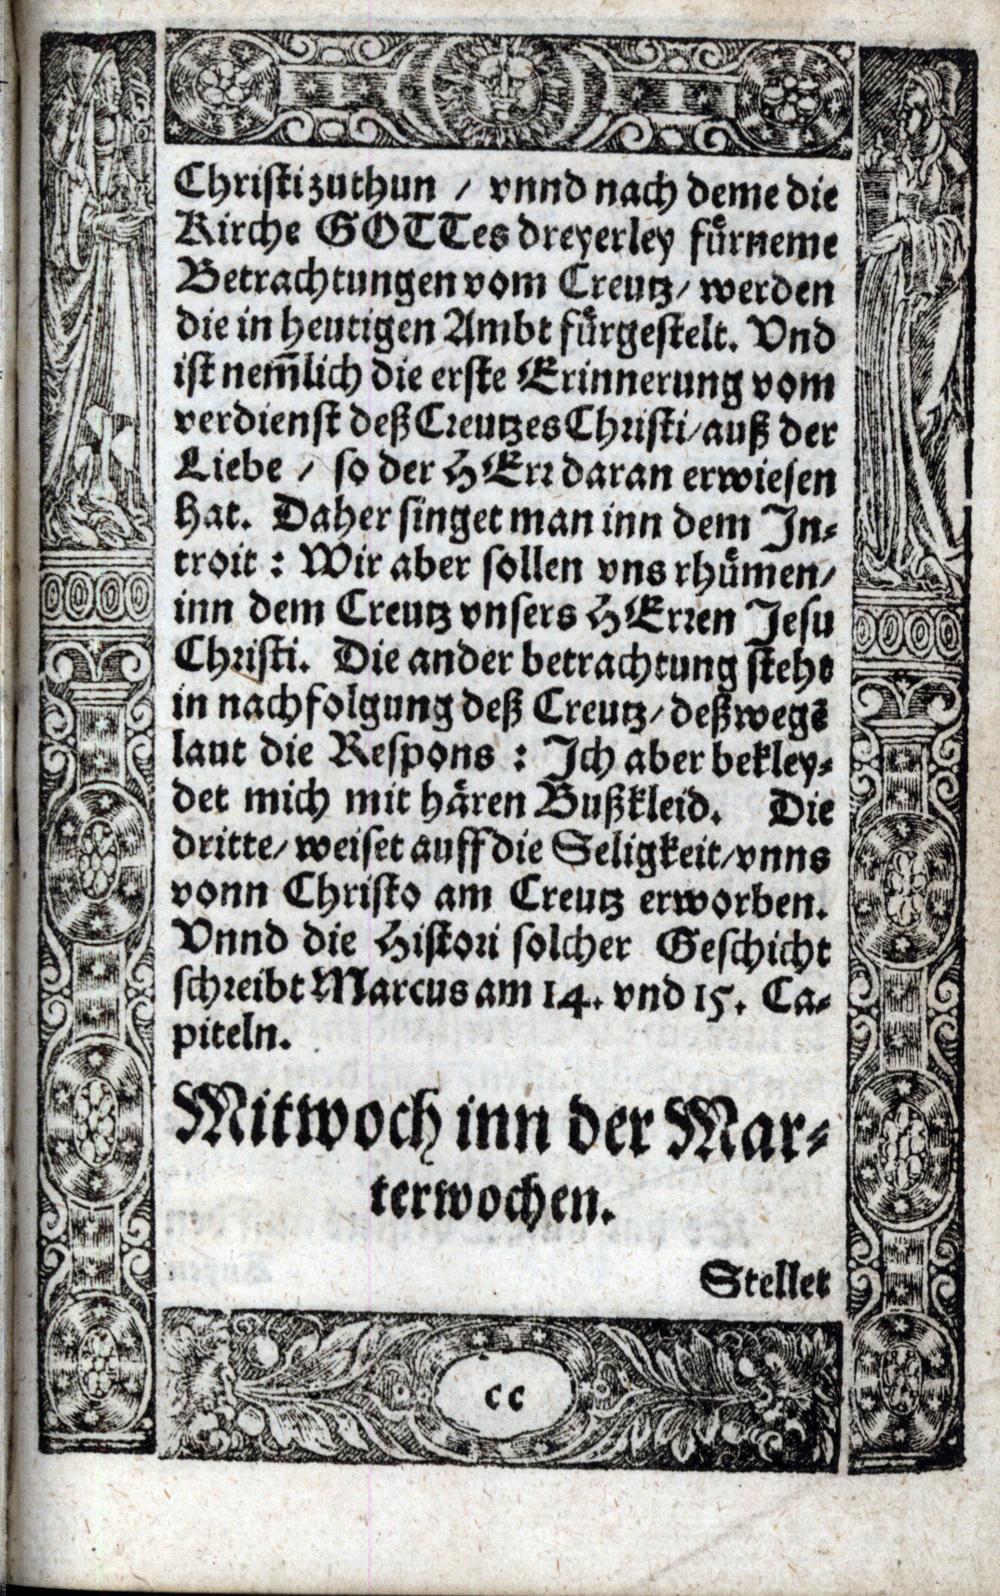 Christi zuthun / vnnd nach deme die
Kirche GOTTes dreyerley fürneme
Betrachtungen vom Creutz / werden
die in heutigen Ambt fürgestelt. Vnd
ist nem̃lich die erste Erinnerung vom
verdienst deß Creutzes Christi / auß der
Liebe / so der HErr daran erwiesen
hat. Daher singet man inn dem In-
troit : Wir aber sollen vns rhümen /
inn dem Creutz vnsers HErren Jesu
Christi. Die ander betrachtung steht
in nachfolgung deß Creutz / deßwegẽ
laut die Respons : Ich aber bekley-
det mich mit hären Bußkleid. Die
dritte / weiset auff die Seligkeit / vnns
vonn Christo am Creutz erworben.
Vnnd die Histori solcher Geschicht
schreibt Marcus am 14. vnd 15. Ca-
piteln.
Mitwoch inn der Mar-
terwochen.
Stellet
cc